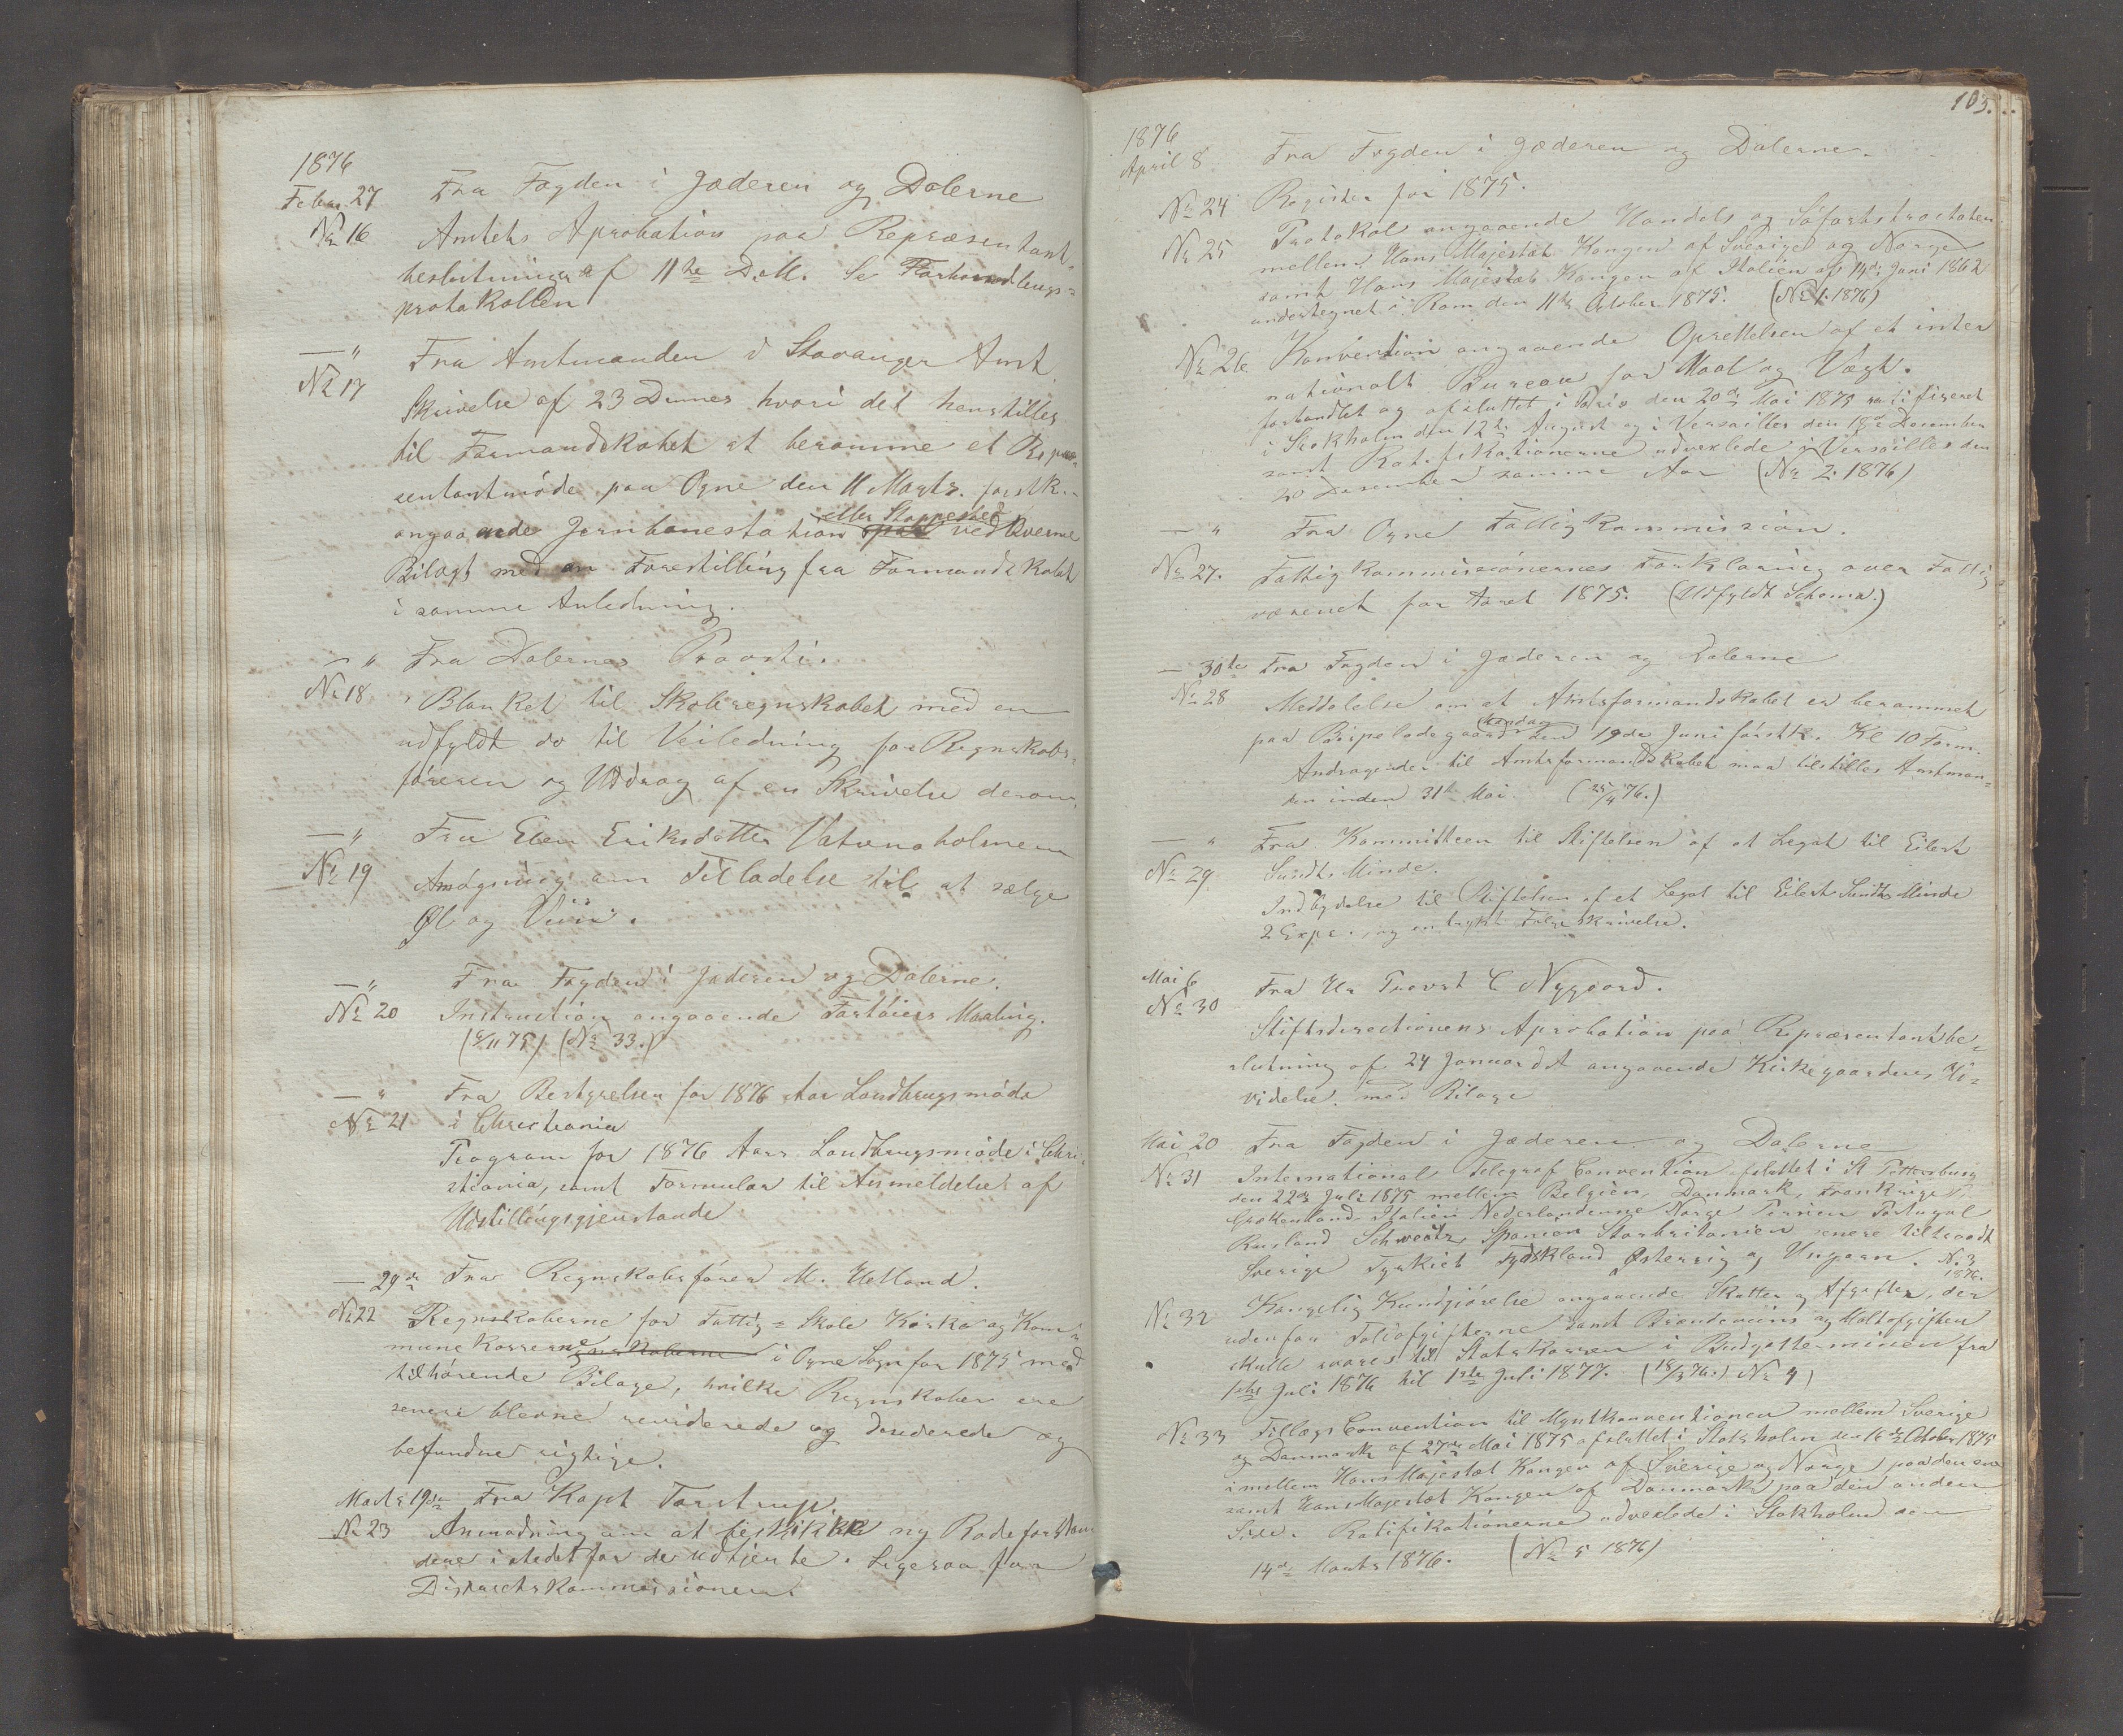 1876
Febru. 27 Fra Fogden i Jæderen og Dalerne
No 16 Amtets Aprobation paa Repræsentant-
beslutninger af 11te D.M. Se Forhandlings-
protokollen
— " Fra Amtmanden i Stavanger Amt
No 17 Skrivelse af 23 Dennes hvori det henstilles
til Formandskabet at beramme et Repræ-
sentantmöde paa Ogne den 11 Marts. förstk.
angaaende Jernbanestation eller Stoppested ved Kverne
Bilagt med en Forestilling fra Formandskabet
i samme Anledning.
— " Fra Dalernes Provsti.
No 18 Blanket til Skoleregnskabet med en
udfyldt do til Veiledning for Regnskabs-
föreren og Uddrag af en Skrivelse derom.
— " Fra Elen Eriksdatter Vatnaholmen
No 19 Ansögning om Tilladelse til at sælge
Øl og Viin.
— " Fra Fogden i Jæderen og Dalerne.
No 20 Instruction angaaende Fartöiers Maaling.
(6/11 75) (No 33.)
— " Fra Bestyrelsen for 1876 Aar Landbrugsmöde
No 21 i Christiania
Program for 1876 Aars Landbrugsmöde i Chri-
stiania, samt Formular til Anmeldelse af
Udstillingsgjenstande
— 29de Fra Regnskabsförer M. Hetland.
No 22 Regnskaberne for Fattig- Skole Kirke og Kom-
munekasserne i Ogne Sogn for 1875 med
tilhörende Bilage, hvilke Regnskaber ere
senere blevne reviderede og desiderede og
befundne rigtige.
Marts 19de Fra Kapt Tarstrup.
No 23 Anmodning om at beskikke ny Rodeforstan
dere istedetfor de udtjente. Ligesaa for
Distriktskommissionen.
103.
1876
April 8 Fra Fogden i Jæderen og Dalerne.
No 24 Register for 1875.
No 25 Protokol angaaende Handels og Söfartstractaten
mellem Hans Majestæt Kongen af Sverige og Norge
samt Hans Majestæt Kongen af Italien af 14de Juni 1862
undertegnet i Rom den 11te October 1875. (No 1. 1876)
No 26 Konvention angaaende Oprettelsen af et inter
nationalt Bureau for Maal og Vægt.
forhandlet og afsluttet i Paris den 20de Mai 1875 ratifiseret
i Stokholm den 12te August og i Versailles den 18de December
samt Ratifikationerne udvexlede i Versailles den
20 December samme Aar (No 2. 1876)
— " Fra Ogne Fattigkommission.
No 27. Fattigkommissionernes Forklaring over Fattig
væsenet for Aaret 1875. (Udfyldt Schema.)
— 30te Fra Fogden i Jæderen og Dalerne
No 28 Meddelelse om at Amtsformandskabet er berammet
paa Bispeladegaard Mandag den 19de Juni förstk. Kl 10 Form.
Andragender til Amtsformandskabet maa tilstilles Amtman-
den inden 31te Mai. (25/4 76.)
— " Fra Kommitteen til Stiftelsen af et Legat til Eilert
No 29 Sundts Minde.
Indbydelse til Stiftelsen af et Legat til Eilert Sundts Minde
2 Expl., og en trykt Fölgeskrivelse.
Mai 6
No 30 Fra Hr Provst C Nygaard.
Stiftsdirectionens Aprobation paa Repræsentantbe-
slutning af 24 Januar dst angaaende Kirkegaardens Ud-
videlse. med Bilage
Mai 20 Fra Fogden i Jæderen og Dalerne
No 31 International Telegraf Convention sluttet i St Pettersburg
den 22de Juli 1875 mellem Belgien, Danmark, Frankrige,
Grækenland Italien Nederlandene Norge Persien Portugal
Rusland Schweitz Spanien Storbritanien senere tiltraadt
Sverige Tyrkiet Tydskland Østerrig og Ungarn. No 3
1876.
No 32 Kongelig Kundgjörelse angaaende Skatter og Afgifter, der
udenfor Toldafgifterne samt Brændeviins og Maltafgiften
skulle svares til Statskassen i Budgetterminen fra
1ste Juli 1876 til 1ste Juli 1877. (18/3 76.) No 4)
No 33 Tillægs Convention til Myntkonventionen mellem Sverige
og Danmark af 27de Mai 1875 afsluttet i Stokholm den 16de October 1875
imellem Hans Majestæt Kongen af Sverige og Norge paa den ene
samt Hans Majestæt Kongen af Danmark paa den anden
Side. Ratifikationerne udvexlede i Stokholm den
14de Marts 1876. (No 5 1876)